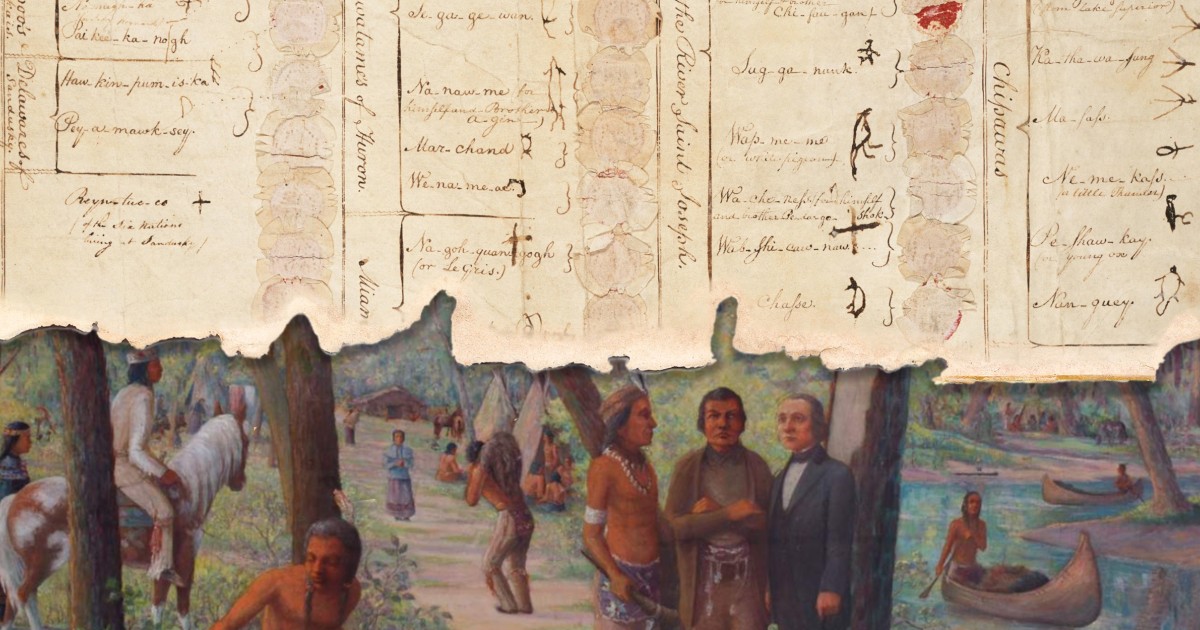 Pai-kee-ka-nogh
Haw-kin-pum-is-ka
Pey-a-mawk-sey.
Reyn-tue-co
of the Six Nations
living at Sandusky
Delawares of
Sandusky
of Huron.
Miam
Na-naw-me for
himself and Brother
A-gin
Mar-chand
We-na-me-ac
Na-goh-quan-gogh
(or Le Gris.)
the River Saint Joseph.
Chi-pau-gon
Sug-ga-nunk.
Wap-me-me
(or white pigeon)
Wa-che-ness for himself
and brother Pe-dar-go-shok
Wab-shi-caw-naw
Chasse.
Chipawas
from Lake Superior)
Ka-tha-wa-sung
Ma-sass.
Ne-me-kass.
(or little Thunder)
Pe-shaw-kay.
(or young ox)
Nan-guey.